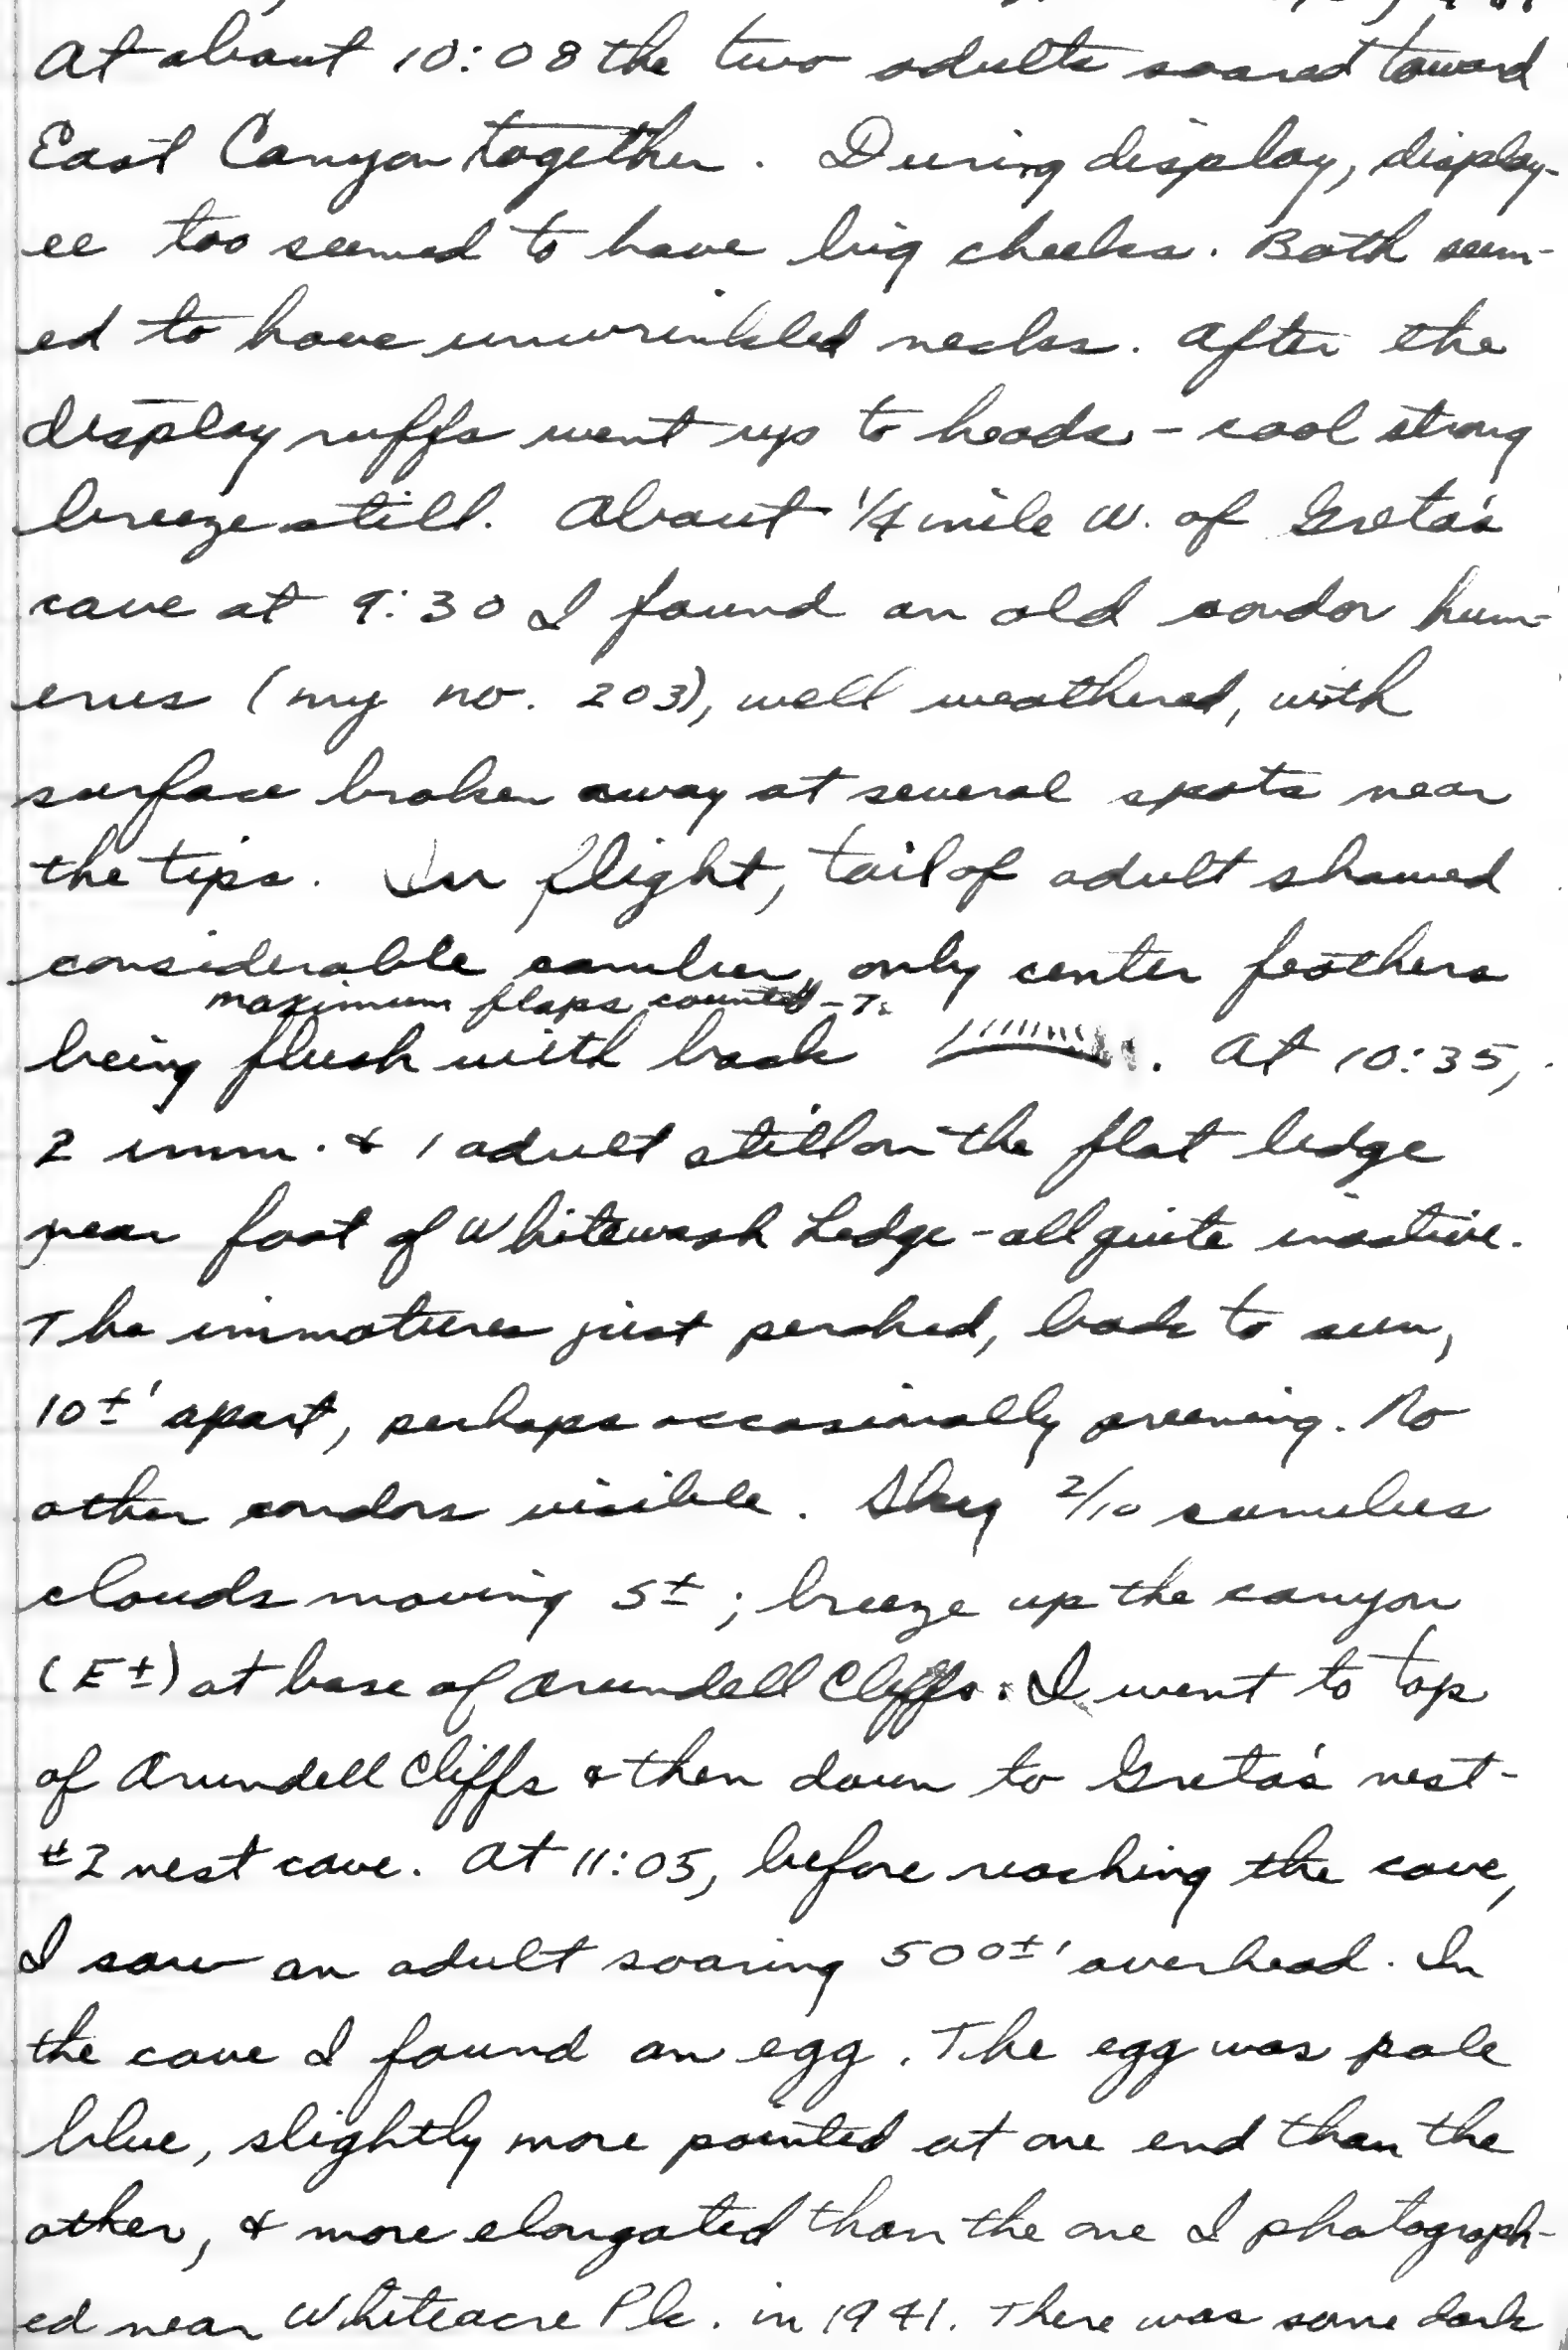 At about 10:08 the two adults soared toward
East Canyon together. During display, display-
ee too seemed to have big cheeks. Both seem-
ed to have unwrinkled necks. After the
display ruffs went up to heads - cool strong
breeze still. About 1/4 mile W. of Greta's
cave at 9:30 I found an old condor hum-
erus (my no. 203), well weathered, with
surface broken away at several spots near
the tips. In flight, tail of adult showed
considerable camber, only center feathers
maximum flaps counted - 7.
being flush with back . At 10:35,
2 imm. & 1 adult still on the flat ledge
near foot of Whitewash Ledge - all quite inactive.
The immatures just perched, backs to sun,
10±' apart, perhaps occasionally preening. No
other condors visible. Sky 2/10 cumulus
clouds moving 5±; breeze up the canyon
(E±) at base of Arundell Cliffs. I went to top
of Arundell Cliffs & then down to Greta's nest-
#2 nest cave. At 11:05, before reaching the cave,
I saw an adult soaring 500±' overhead. In
the cave I found an egg. The egg was pale
blue, slightly more pointed at one end than the
other, & more elongated than the one I photograph-
ed near Whiteacre Pk. in 1941. There was some dark